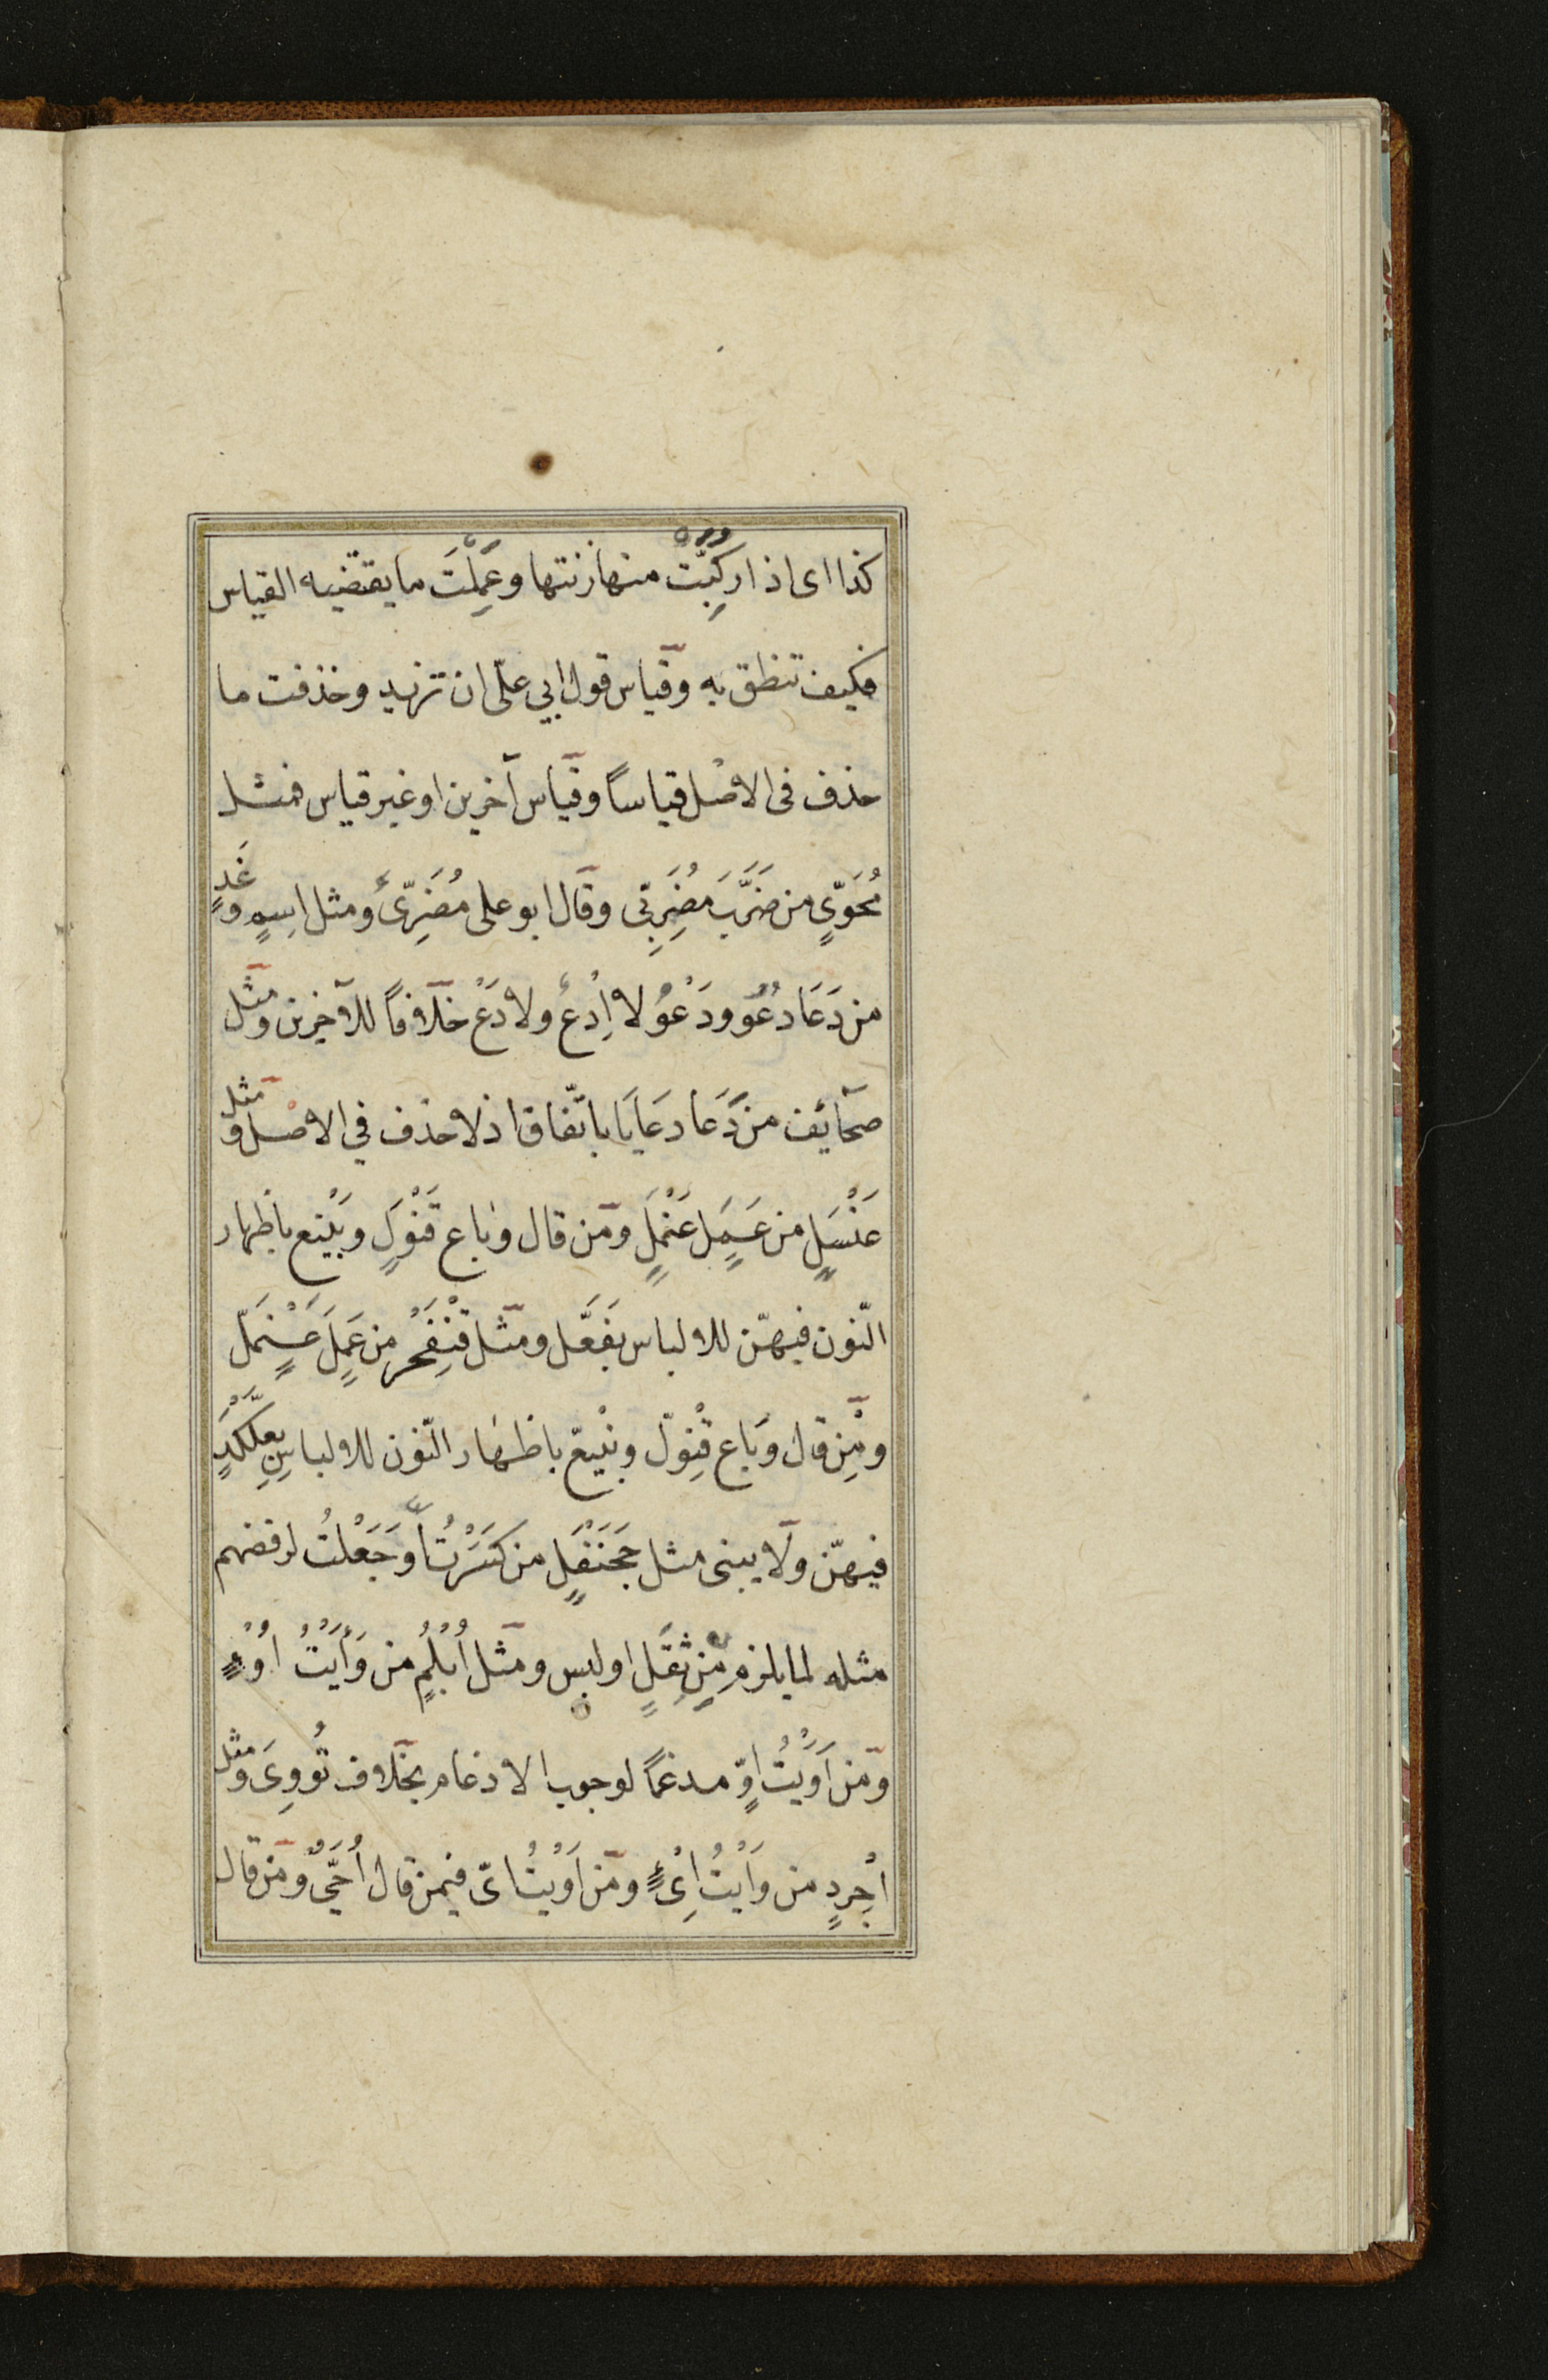 كذا اى اذا ركبّت منها زنتها وعَمِلْتَ ما يقتضيه القياس
فكيف تنطق به وقياس قول ابي علىّ ان تزيد وحذفت ما
حذف فى الاصل قياساً وقياس آخرين او غير قياس فمثل
مُحَوّىٍ من ضَرَّبَ مُضَرِبّى وقال ابو على مُضَرّىٌ ومثل اِسمٍ وغَدٍ
من دَعَا دُعْوٌ ودَعْوٌ لا اِدْعٌ ولا دَعٌ خلافاً للآخرين ومثل
صحآئف من دَعَا دعَايَا باتّفاق اذ لا حذف في الاصل ومثل
عَنْسَلٍ من عَمِلَ عَنْمَلٍ ومن قال وباع قَنْوَلٍ وبَيْنَع باظهار
النّون فيهنّ للالباس بفَعَّل ومثل قِنْفَخْرٍ من عَمِلَ عِنْمَلّ
ومِن قال وباع قِنْوَلّ وبِنْيَعّ باظهار النّون للالباس بِعِلَّكْدٍ
فيهنّ ولا يبنى مثل جَحَنْفَلٍ من كَسَرْتُ اَوْ جَعَلْتُ لرفضهم
مثله لما يلزم مِن ثِقَلٍ او لبس ومثل اُبْلُمٍ من وَأَيْتُ اُوْءٍ
ومن اَوَيْتُ اوٍّ مدغماً لوجوب الادغام بخلاف تُووِىَ ومثل
اِجْرِدٍ من وَأَيْتُ اِىْءٍ ومن اَوَيْتُ اىّ فيمن قال اُحَىٌّ ومن قال